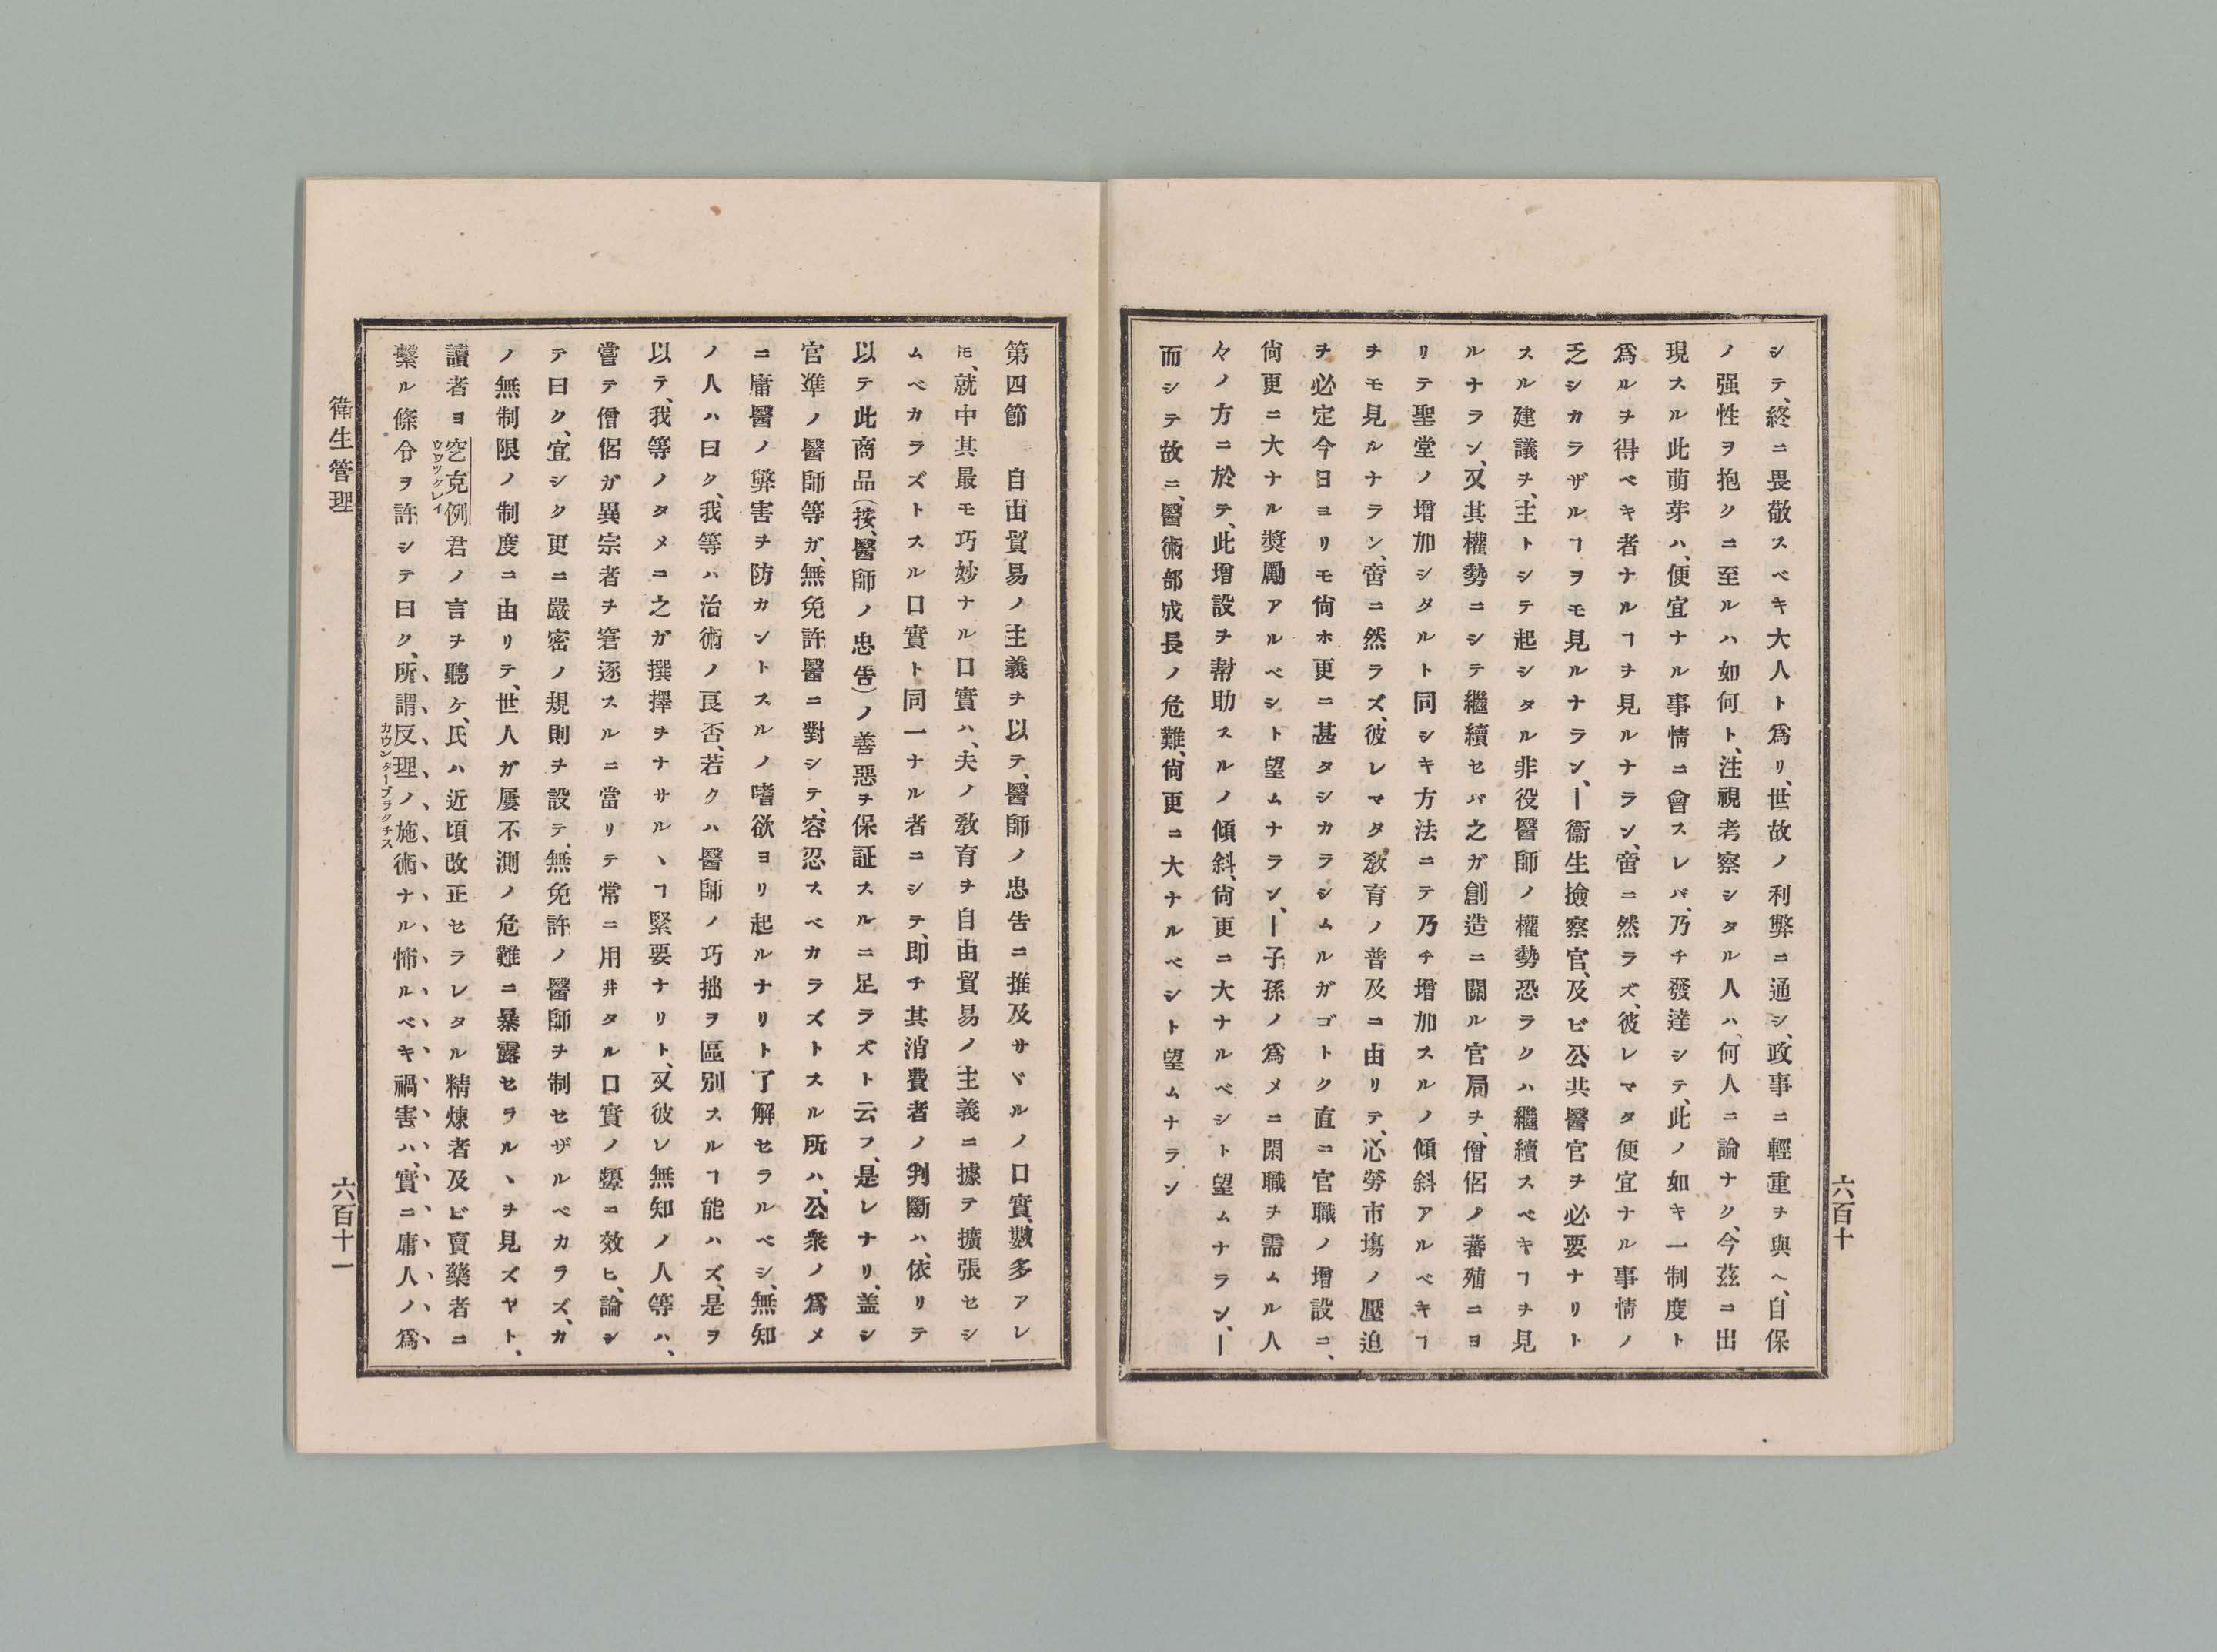 シテ、終ニ畏敬スベキ大人ト爲リ、世故ノ利弊ニ通シ、政事ニ輕重ヲ與ヘ、自保
ノ强性ヲ抱クニ至ルハ如何ト、注視考察シタル人ハ、何人ニ論ナク、今茲ニ出
現スル此萌芽ハ、便宜ナル事情ニ會スレバ、乃チ發達シテ、此ノ如キ一制度ト
爲ルヲ得ベキ者ナルヿヲ見ルナラン、啻ニ然ラズ、彼レマタ便宜ナル事情ノ
乏シカラザルヿヲモ見ルナラン、―衞生撿察官、及ビ公共醫官ヲ必要ナリト
スル建議ヲ、主トシテ起シタル非役醫師ノ權勢恐ラクハ繼續スベキヿヲ見
ルナラン、又其權勢ニシテ繼續セバ之ガ創造ニ關ル官局ヲ、僧侶ノ蕃殖ニヨ
リテ聖堂ノ增加シタルト同シキ方法ニテ乃チ增加スルノ傾斜アルベキヿ
ヲモ見ルナラン、啻ニ然ラズ、彼レマタ敎育ノ普及ニ由リテ、心勞市塲ノ壓迫
ヲ必定今日ヨリモ尙ホ更ニ甚タシカラシムルガゴトク直ニ官職ノ增設ニ、
尙更ニ大ナル奬勵アルベシト望ムナラン、―子孫ノ爲メニ閑職ヲ需ムル人
々ノ方ニ於テ、此增設ヲ幇助スルノ傾斜、尙更ニ大ナルベシト望ムナラン、―
而シテ故ニ、醫術部成長ノ危難、尙更ニ大ナルベシト望ムナラン
六百十
第四節　自由貿易ノ主義ヲ以テ、醫師ノ忠吿ニ推及サヾルノ口實、數多アレ
𪜈、就中其最モ巧妙ナル口實ハ、夫ノ敎育ヲ自由貿易ノ主義ニ據テ擴張セシ
ムベカラズトスル口實ト同一ナル者ニシテ、即チ其消費者ノ判斷ハ、依リテ
以テ此商品（按、醫師ノ忠吿）ノ善惡ヲ保証スルニ足ラズト云フ、是レナリ、盖シ
官準ノ醫師等ガ、無免許醫ニ對シテ、容忍スベカラズトスル所ハ、公衆ノ爲メ
ニ庸醫ノ弊害ヲ防カントスルノ嗜欲ヨリ起ルナリト了解セラルベシ、無知
ノ人ハ曰ク、我等ハ治術ノ良否、若クハ醫師ノ巧拙ヲ區別スルヿ能ハズ、是ヲ
以テ、我等ノタメニ之ガ撰擇ヲナサルヽヿ緊要ナリト、又彼レ無知ノ人等ハ、
嘗テ僧侶ガ異宗者ヲ窘逐スルニ當リテ常ニ用井タル口實ノ顰ニ效ヒ、論シ
テ曰ク、宜シク更ニ嚴密ノ規則ヲ設テ、無免許ノ醫師ヲ制セザルベカラズ、カ
ノ無制限ノ制度ニ由リテ、世人ガ屢不測ノ危難ニ暴露セラルヽヲ見ズヤト、
讀者ヨ窆克例君ノ言ヲ聽ケ、氏ハ近頃改正セラレタル精煉者及ビ賣藥者ニ
ウワツクレイ
繫ル條令ヲ許シテ曰ク、所謂反理ノ施術ナル怖ルベキ禍害ハ、實ニ庸人ノ爲
カウンターブラクチス
衞生管理
六百十一